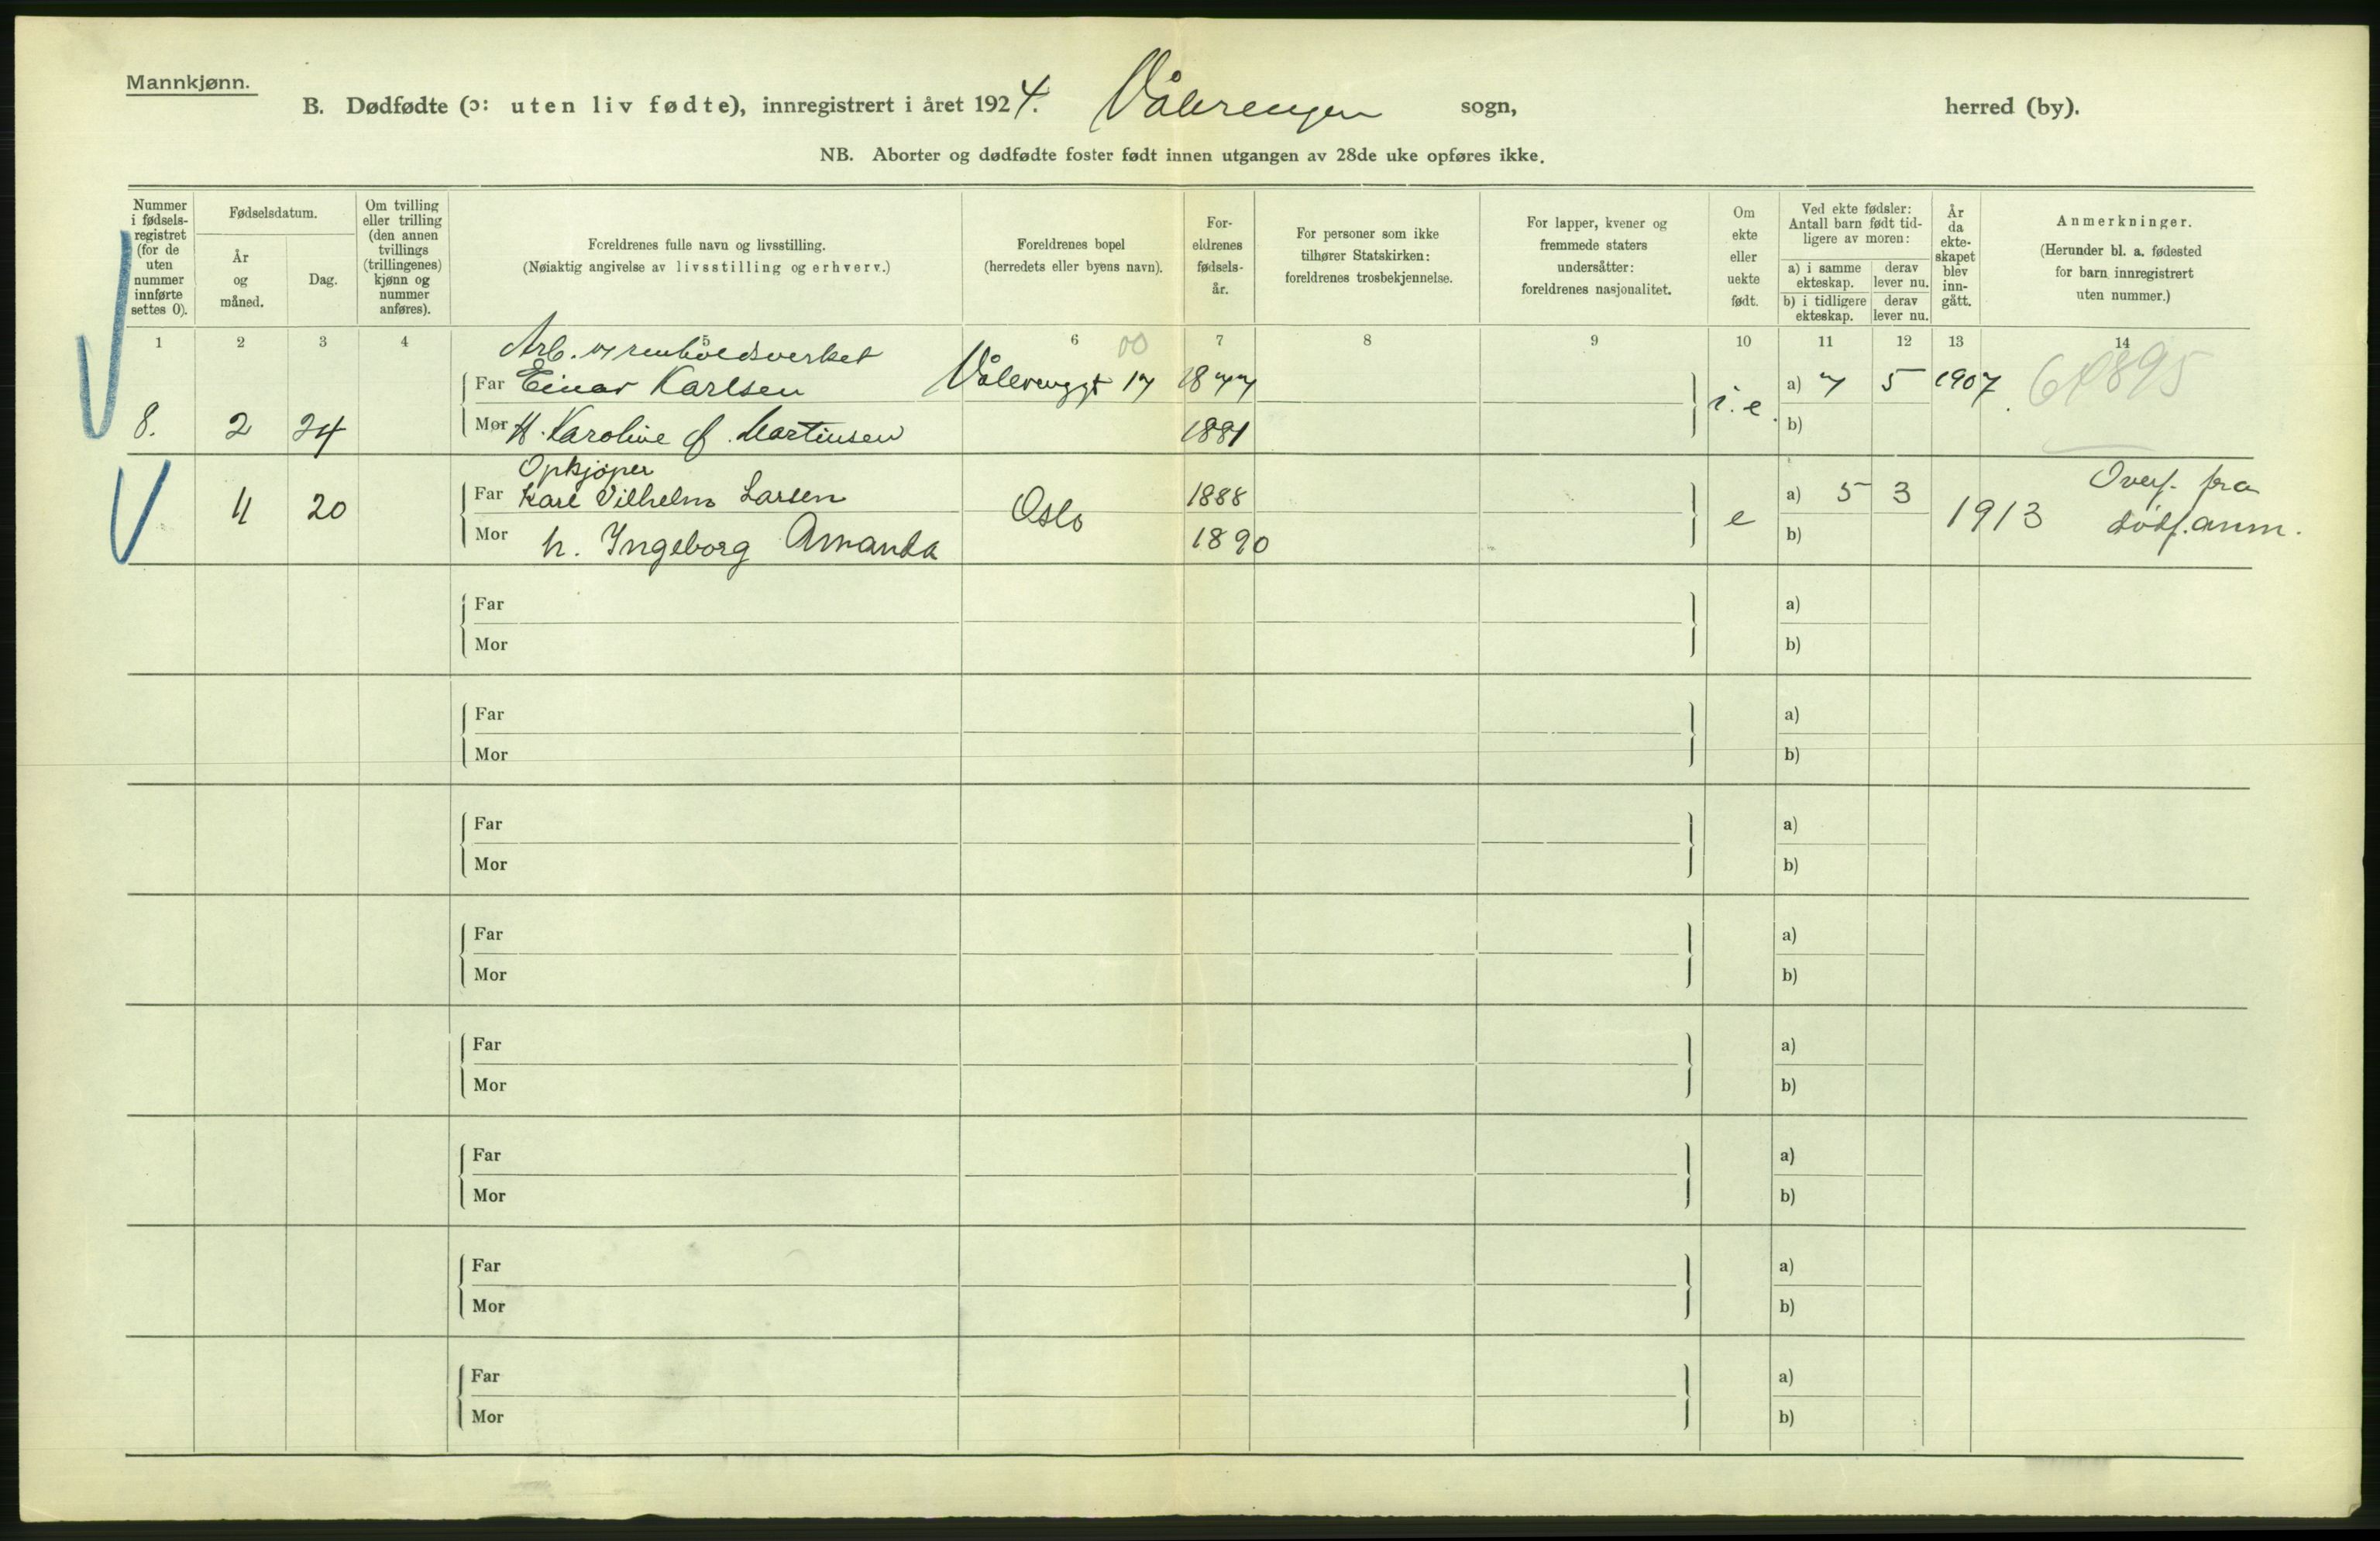 Mannkjønn.
B. Dødfødte (ɔ: uten liv fødte), innregistrert i året 1924. Vålerengen sogn, herred (by).
NB. Aborter og dødfødte foster født innen utgangen av 28de uke opføres ikke.
Nummer i fødsels-registret (for de uten nummer innførte settes 0).
Fødselsdatum.
År og måned.
Dag.
Om tvilling eller trilling (den annen tvillings (trillingenes) kjønn og nummer anføres).
Foreldrenes fulle navn og livsstilling.
(Nøiaktig angivelse av livsstilling og erhverv.)
Foreldrenes bopel
(herredets eller byens navn).
For-eldrenes fødsels-år.
For personer som ikke tilhører Statskirken: foreldrenes trosbekjennelse.
For lapper, kvener og fremmede staters undersåtter: foreldrenes nasjonalitet.
Om ekte eller uekte født.
Ved ekte fødsler: Antall barn født tid-ligere av moren:
a) i samme ekteskap. derav lever nu.
b) i tidligere ekteskap. derav lever nu.
År da ekte-skapet blev inn-gått.
Anmerkninger.
(Herunder bl. a. fødested for barn innregistrert uten nummer.)
1 2 3 4 5 6 7 8 9 10 11 12 13 14
Arb. v renholdsverket 00
Far Einar Karlsen Vålerenggt 17 1877 a) 7 5 1907
8. 2 24 Mor H. Karoline f. Martinsen 1881 i.e. b)
Opkjøper
Far Karl Vilhelm Larsen 1888 a) 5 3 Overf. fra
4 20 Oslo e 1913 dødf. anm.
Mor h. Ingeborg Amanda 1890 b)
Far a)
Mor b)
Far a)
Mor b)
Far a)
Mor b)
Far a)
Mor b)
Far a)
Mor b)
Far a)
Mor b)
Far a)
Mor b)
Far a)
Mor b)